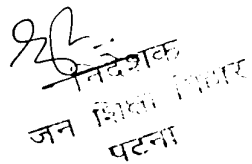 निदेशक
जन शिक्षा
पटना